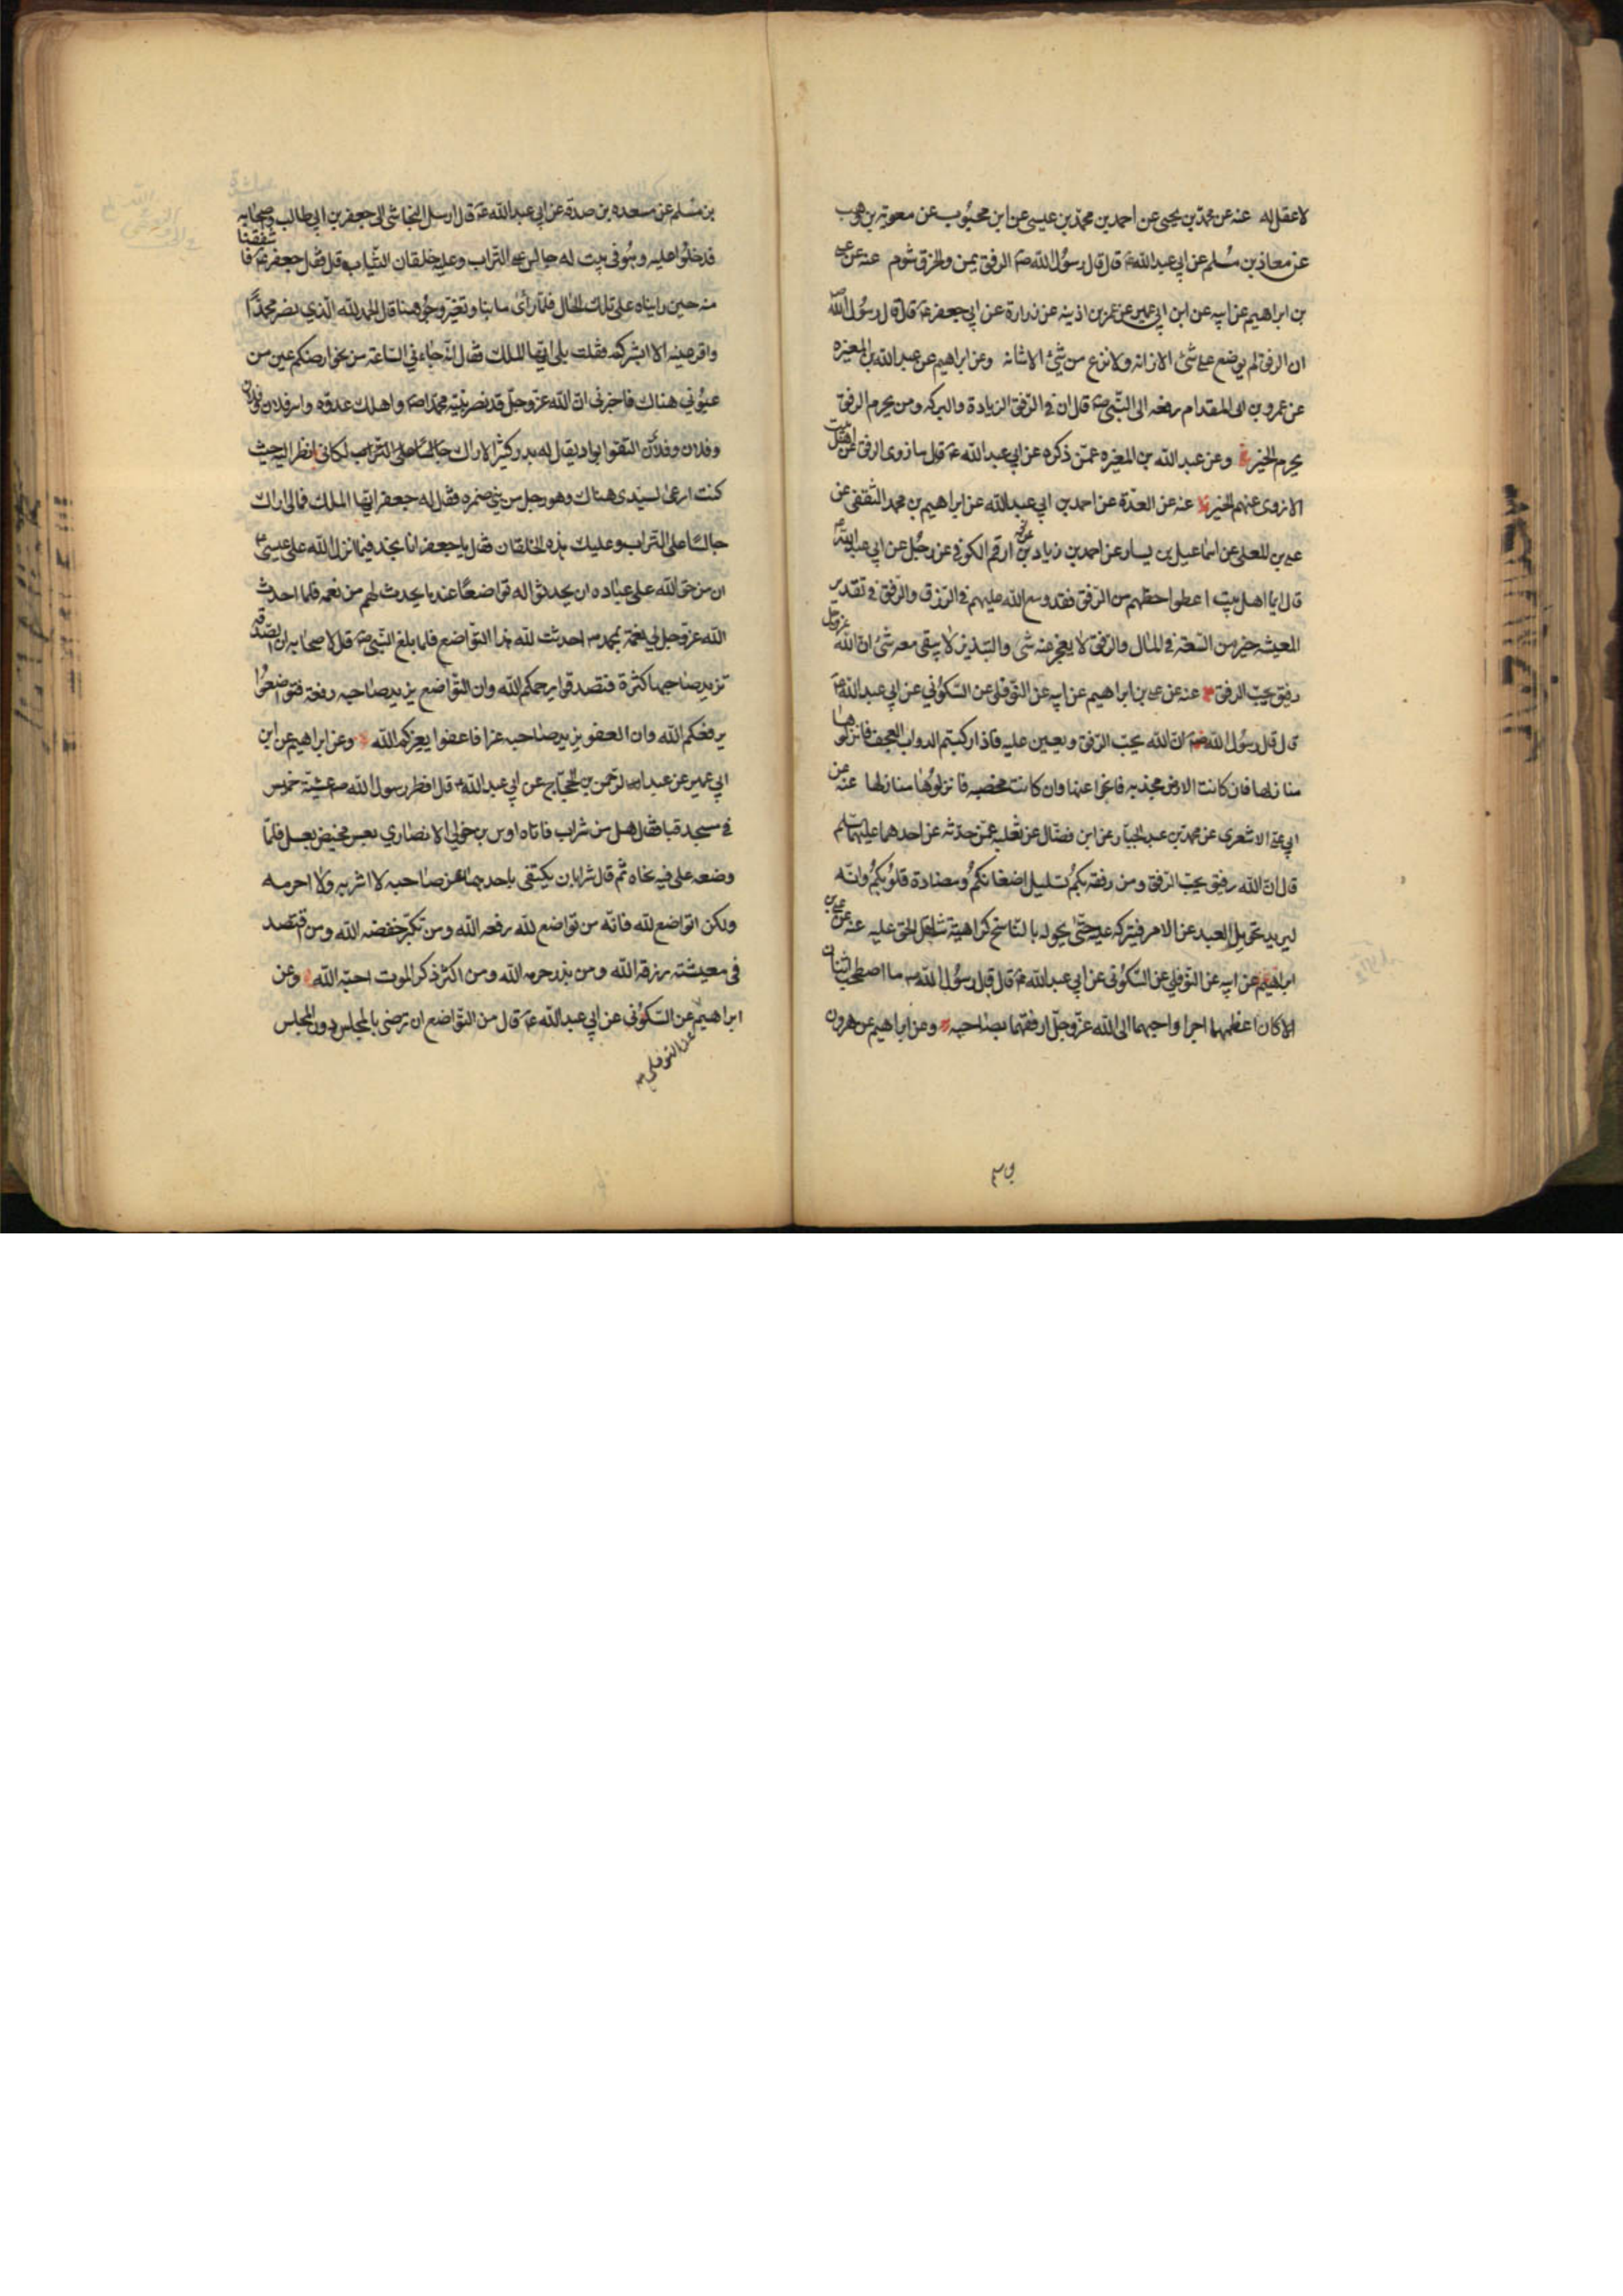 لا عقل له عنه عن محمد بن يحيى عن احمد بن محمد بن عيسى عن ابن محبوب عن معوية بن وهب
عن معاذ بن مسلم عن ابي عبد الله ع قال قال رسول الله ص الرفق يمن والخرق شوم عنه عن علي
بن ابراهيم عن ابيه عن ابن ابي عمير عن عمر بن اذينه عن زرارة عن ابي جعفر ع قال قال رسول الله ص
ان الرفق لم يوضع على شئ الا زانه ولا نزع من شئ الا شانه وعن ابراهيم عن عبد الله بن المغيره
عن عمرو بن ابي المقدام رفعه الى النبي ص قال ان في الرفق الزيادة والبركه ومن يحرم الرفق
يحرم الخير وعن عبد الله بن المغيره عمن ذكره عن ابي عبد الله ع قال ما زوى الرفق عن اهل بيت
الا زوى عنهم الخير عنه عن العدة عن احمد بن ابي عبد الله عن ابراهيم بن محمد الثقفي عن
علي بن المعلى عن اسماعيل بن يسار عن احمد بن زياد بن ارقم الكوفي عن رجل عن ابي عبد الله ع
قال ايما اهل بيت اعطوا حظهم من الرفق فقد وسع الله عليهم في الرزق والرفق في تقدير
المعيشه خير من السعة في المال والرفق لا يعجز عنه شئ والتبذير لا يبقى معه شئ ان الله عز وجل
رفيق يحب الرفق عنه عن علي بن ابراهيم عن ابيه عن النوفلي عن السكوني عن ابي عبد الله ع
قال قال رسول الله ص ان الله يحب الرفق ويعين عليه فاذا ركبتم الدواب العجف فانزلوها
منازلها فان كانت الارض مجدبه فانجوا عنها وان كانت مخصبه فانزلوها منازلها عنه عن
ابي علي الاشعري عن محمد بن عبد الجبار عن ابن فضال عن ثعلبه عمن حدثه عن احدهما عليهما سلم
قال ان الله رفيق يحب الرفق ومن رفقه بكم تسليل اضغانكم ومضادة قلوبكم وانه
ليريد تحويل العبد عن الامر فيتركه عليه حتى يحوله بالناسخ كراهية تثاقل الحق عليه عنه عن علي بن
ابراهيم عن ابيه عن النوفلي عن السكوني عن ابي عبد الله ع قال قال رسول الله ص ما اصطحب اثنان
الا كان اعظمهما اجرا واحبهما الى الله عز وجل ارفقهما بصاحبه وعن ابراهيم عن هرون
بن مسلم عن مسعده بن صدقة عن ابي عبد الله ع قال ارسل النجاشى الى جعفر بن ابي طالب واصحابه
فدخلوا عليه وهو في بيت له جالس على التراب وعليه خلقان الثياب قال فقال جعفر ع فاشفقنا
منه حين رايناه على تلك الحال فلما رأى ما بنا وتغير وجوهنا قال الحمد لله الذي نصر محمدا
واقر عينه الا ابشركم فقلت بلى ايها الملك فقال انه جاءني الساعة من نحو ارضكم عين من
عيوني هناك فاخبرني ان الله عز وجل قد نصر نبيه محمدا ص واهلك عدوه واسر فلان وفلان
وفلان وفلان التقوا بواد يقال له بدر كثير الاراك جالسا على التراب لكاني انظر اليه حيث
كنت ارعى لسيدى هناك وهو رجل من بني ضمره فقال له جعفر ايها الملك فمالى اراك
جالسا على التراب وعليك هذه الخلقان فقال يا جعفر انا نجد فيما انزل الله على عيسى ع
ان من حق الله على عباده ان يحدثوا له تواضعا عند ما يحدث لهم من نعمه فلما احدث
الله عز وجل لي نعمة بمحمد ص احدثت لله هذا التواضع فلما بلغ النبي ص قال لاصحابه ان الصدقة
تزيد صاحبها كثرة فتصدقوا يرحمكم الله وان التواضع يزيد صاحبه رفعة فتواضعوا
يرفعكم الله وان العفو يزيد صاحبه عزا فاعفوا يعزكم الله وعن ابراهيم عن ابن
ابي عمير عن عبد الرحمن بن الحجاج عن ابي عبد الله ع قال افطر رسول الله ص عشية خميس
في مسجد قبا فقال هل من شراب فاتاه اوس بن خولي الانصاري بعس مخيض بعسل فلما
وضعه على فيه نحاه ثم قال شرابان يكتفى باحدهما عن صاحبه لا اشربه ولا احرمه
ولكن اتواضع لله فانه من تواضع لله رفعه الله ومن تكبر خفضه الله ومن اقتصد
في معيشته رزقه الله ومن بذر حرمه الله ومن اكثر ذكر الموت احبه الله وعن
ابراهيم عن السكوني عن ابي عبد الله ع قال من التواضع ان ترضى بالمجلس دون المجلس
عن النوفلي